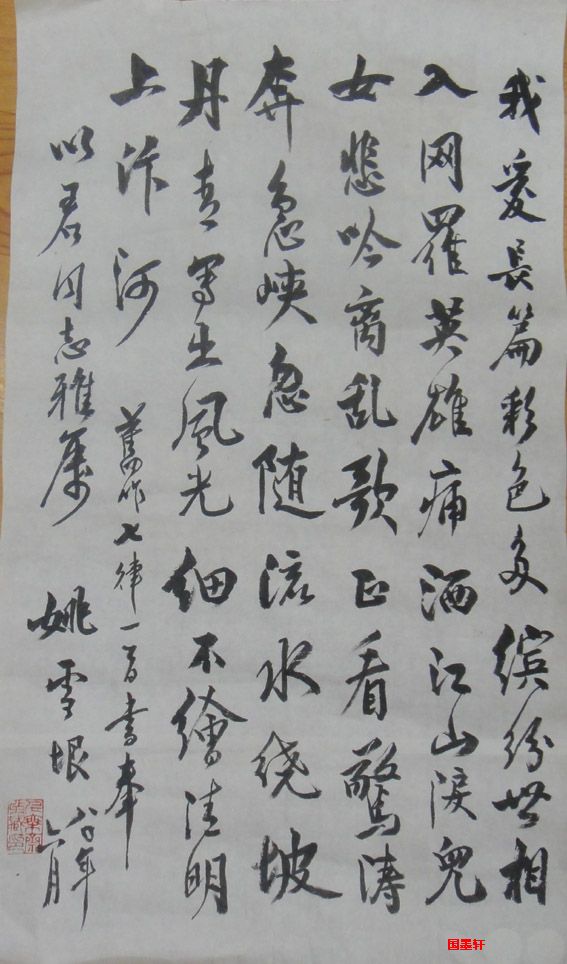 我爱长篇彩色多缤纷世相
入网羅英雄痛洒江山淚兒
女悲吟离乱歌正看驚涛
奔急峡忽随流水绕坡
丹青写出風光细不繪清明
上汴河 舊作七律一首書奉
以君同志雅属 姚雪垠 八〇年六月
国墨轩